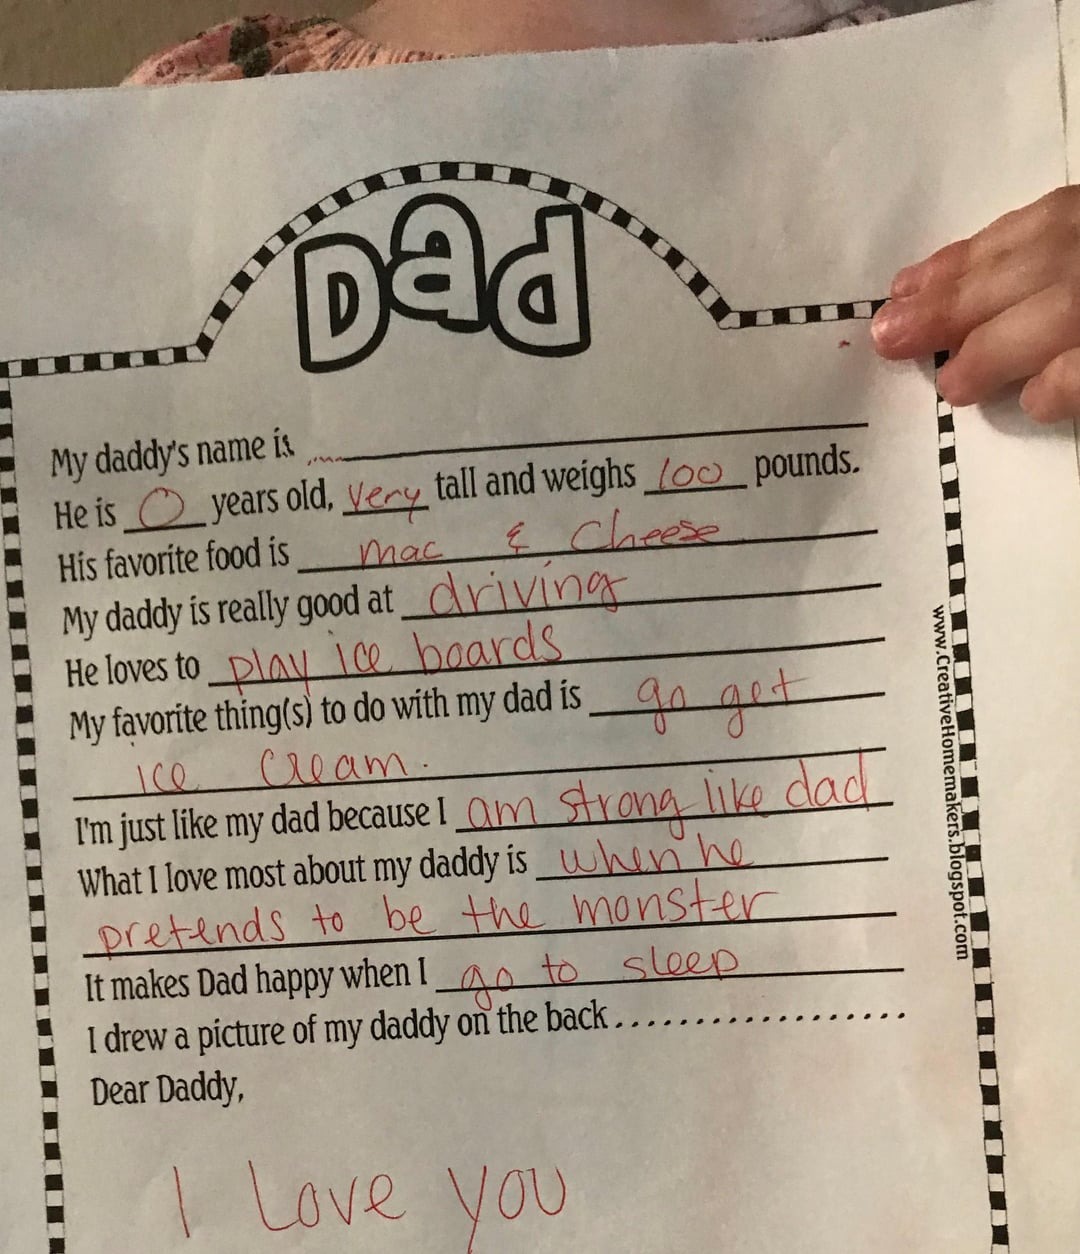 Dad
My daddy's name is
He is 0 years old, very tall and weighs 100 pounds.
His favorite food is mac & cheese
My daddy is really good at driving
He loves to play ice boards
My favorite thing(s) to do with my dad is go get
ice cream.
I'm just like my dad because I am strong like dad
What I love most about my daddy is when he
pretends to be the monster
It makes Dad happy when I go to sleep
I drew a picture of my daddy on the back..................
Dear Daddy,
I Love you
www.CreativeHomemakers.blogspot.com